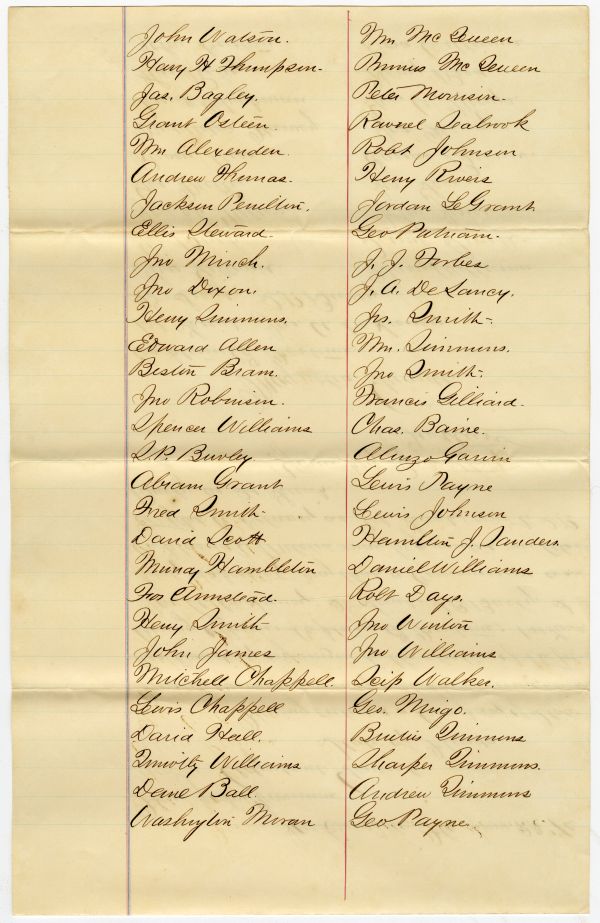 John Watson.
Harry H Thompson.
Jas. Bagley.
Grant Osteen.
Wm Alexender.
Andrew Thomas.
Jackson Penilton.
Ellis Steward.
Jno Minch.
Jno Dixon.
Henry Simmons.
Edward Allen
Bestin Bram.
Jno Robinson.
Spencer Williams
S.P. Burley
Abram Grant
Fred Smith
David Scott
Murray Hambleton
Armstead.
Heny Smith
John James
Mitchell Chappell.
Lewis Chappell
David Hall.
Timothy Williams
Dave Ball
Washington Moran
Wm McQueen
McQueen
Peter Morrison.
Ravnel Seabrook
Robt Johnson
Henry Rivers
Jordan LeGrant
Geo Putnam.
J. J. Forbes
J. A. DeLancy.
Jas. Smith
Wm. Simmons.
Jno Smith.
Francis Gilliard.
Chas. Baine.
Alonzo Garvin
Lewis Payne
Lewis Johnson
Hamilton J. Sanders
Daniel Williams
Robt Days.
Jno Winton
Jno Williams
Scip Walker.
Geo. Mingo.
Brutus Timmons
Sharper Timmons.
Andrew Timmons
Geo Payne